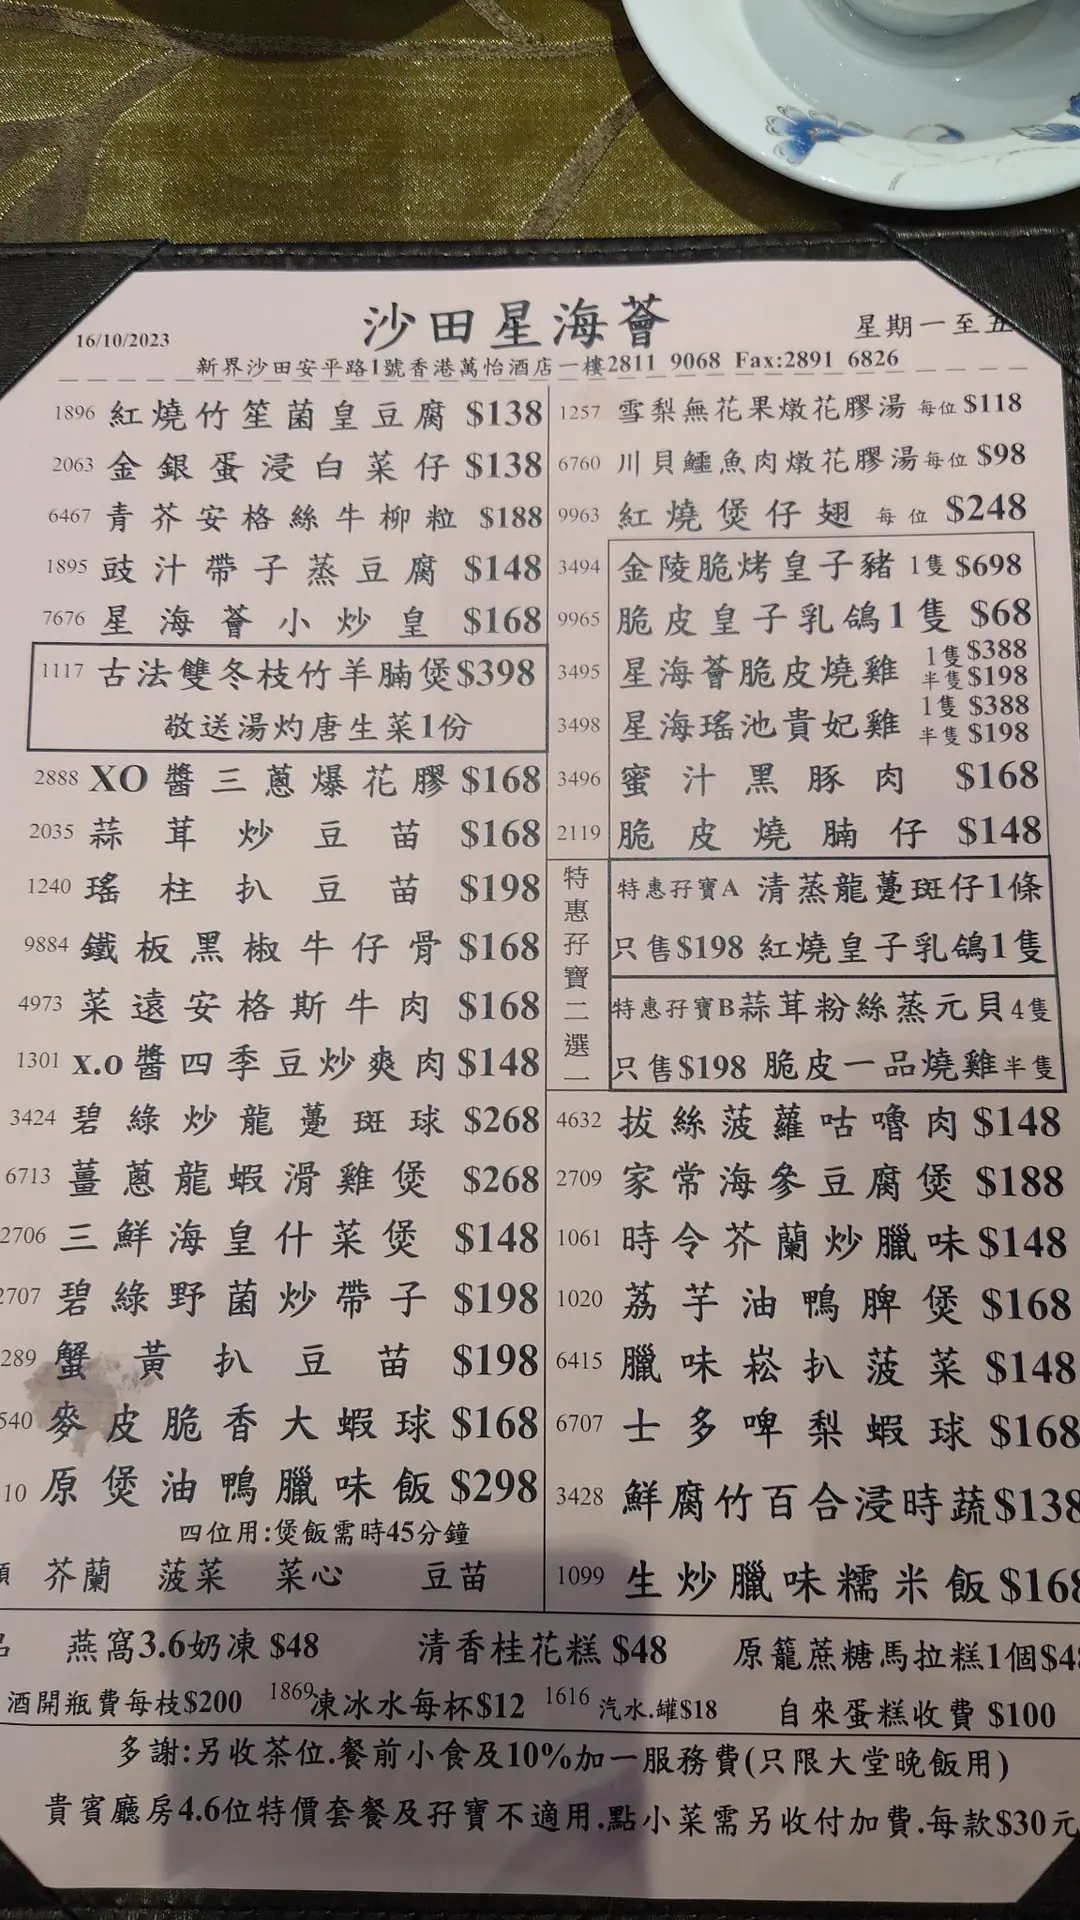 沙田星海薈
16/10/2023
星期一至五
新界沙田安平路1號香港萬怡酒店一樓2811 9068 Fax:2891 6826
1896 紅燒竹笙菌皇豆腐 $138
2063 金銀蛋浸白菜仔 $138
6467 青芥安格絲牛柳粒 $188
1895 豉汁帶子蒸豆腐 $148
7676 星海薈小炒皇 $168
1117 古法雙冬枝竹羊腩煲$398
敬送湯灼唐生菜1份
2888 XO醬三蔥爆花膠 $168
2035 蒜茸炒豆苗 $168
1240 瑤柱扒豆苗 $198
9884 鐵板黑椒牛仔骨 $168
4973 菜遠安格斯牛肉 $168
1301 x.o醬四季豆炒爽肉 $148
3424 碧綠炒龍躉斑球 $268
6713 薑蔥龍蝦滑雞煲 $268
2706 三鮮海皇什菜煲 $148
2707 碧綠野菌炒帶子 $198
289 蟹黃扒豆苗 $198
540 麥皮脆香大蝦球 $168
10 原煲油鴨臘味飯 $298
四位用:煲飯需時45分鐘
芥蘭 菠菜 菜心 豆苗
1257 雪梨無花果燉花膠湯 每位 $118
6760 川貝鱷魚肉燉花膠湯每位 $98
9963 紅燒煲仔翅 每位 $248
3494 金陵脆烤皇子豬 1隻 $698
9965 脆皮皇子乳鴿1隻 $68
3495 星海薈脆皮燒雞 1隻 $388
半隻 $198
3498 星海瑤池貴妃雞 1隻 $388
半隻 $198
3496 蜜汁黑豚肉 $168
2119 脆皮燒腩仔 $148
特惠孖寶二選一
特惠孖寶A 清蒸龍躉斑仔1條
只售$198 紅燒皇子乳鴿1隻
特惠孖寶B蒜茸粉絲蒸元貝4隻
只售$198 脆皮一品燒雞半隻
4632 拔絲菠蘿咕嚕肉 $148
2709 家常海參豆腐煲 $188
1061 時令芥蘭炒臘味 $148
1020 荔芋油鴨脾煲 $168
6415 臘味崧扒菠菜 $148
6707 士多啤梨蝦球 $168
3428 鮮腐竹百合浸時蔬$138
1099 生炒臘味糯米飯 $168
燕窩3.6奶凍 $48 清香桂花糕 $48 原籠蔗糖馬拉糕1個$48
酒開瓶費每枝$200 1869凍冰水每杯$12 1616 汽水.罐$18 自來蛋糕收費 $100
多謝:另收茶位.餐前小食及10%加一服務費(只限大堂晚飯用)
貴賓廳房4.6位特價套餐及孖寶不適用.點小菜需另收付加費.每款$30元